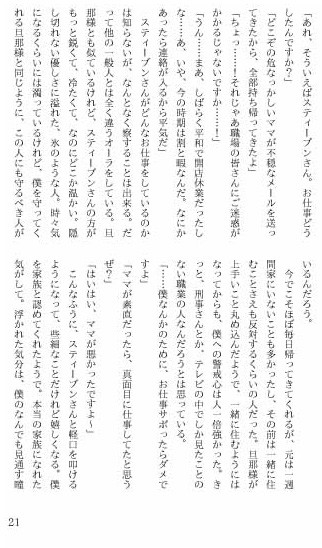 「あれ、そういえばスティーブンさん。お仕事どう
したんですか？」
「どこぞの危なっかしいママが不穏なメールを送っ
てきたから、全部持ち帰ってきたよ」
「ちょっ……！それじゃあ職場の皆さんにご迷惑が
かかるじゃないですか……！」
「うん……まあ、しばらく平和で開店休業だったし
な……あ、いや、今の時期は割と暇なんだ。なにか
あったら連絡が入るから平気だ」
　スティーブンさんがどんなお仕事をしているのか
は知らないが、なんとなく察することは出来る。だ
って他の一般人とは全く違うオーラをしている。旦
那様とも似ているけれど、スティーブンさんの方が
もっと鋭くて、冷たくて、なのにどこか温かい。隠
し切れない優しさに溢れた、氷のような人。時々気
になるくらいには濁っているけれど、僕を守ってく
れる旦那様と同じように、この人にも守るべき人が
いるんだろう。
　今でこそほぼ毎日帰ってきてくれるが、元は一週
間家にいないことも多かったし、その前は一緒に住
むことさえも反対するくらいの人だった。旦那様が
上手いこと丸め込んだようで、一緒に住むようには
なってからも、僕への警戒心は人一倍強かった。き
っと、刑事さんとか、テレビの中でしか見たことの
ない職業の人なんだろうとは思っている。
「……僕なんかのために、お仕事サボったらダメで
すよ」
「ママが素直だったら、真面目に仕事してたと思う
ぜ？」
「はいはい、ママが悪かったですよ～」
　こんなふうに、スティーブンさんと軽口を叩ける
ようになって、些細なことだけれど嬉しくなる。僕
を家族と認めてくれたようで、本当の家族になれた
気がして。浮かれた気分は、僕のなんでも見通す瞳
21